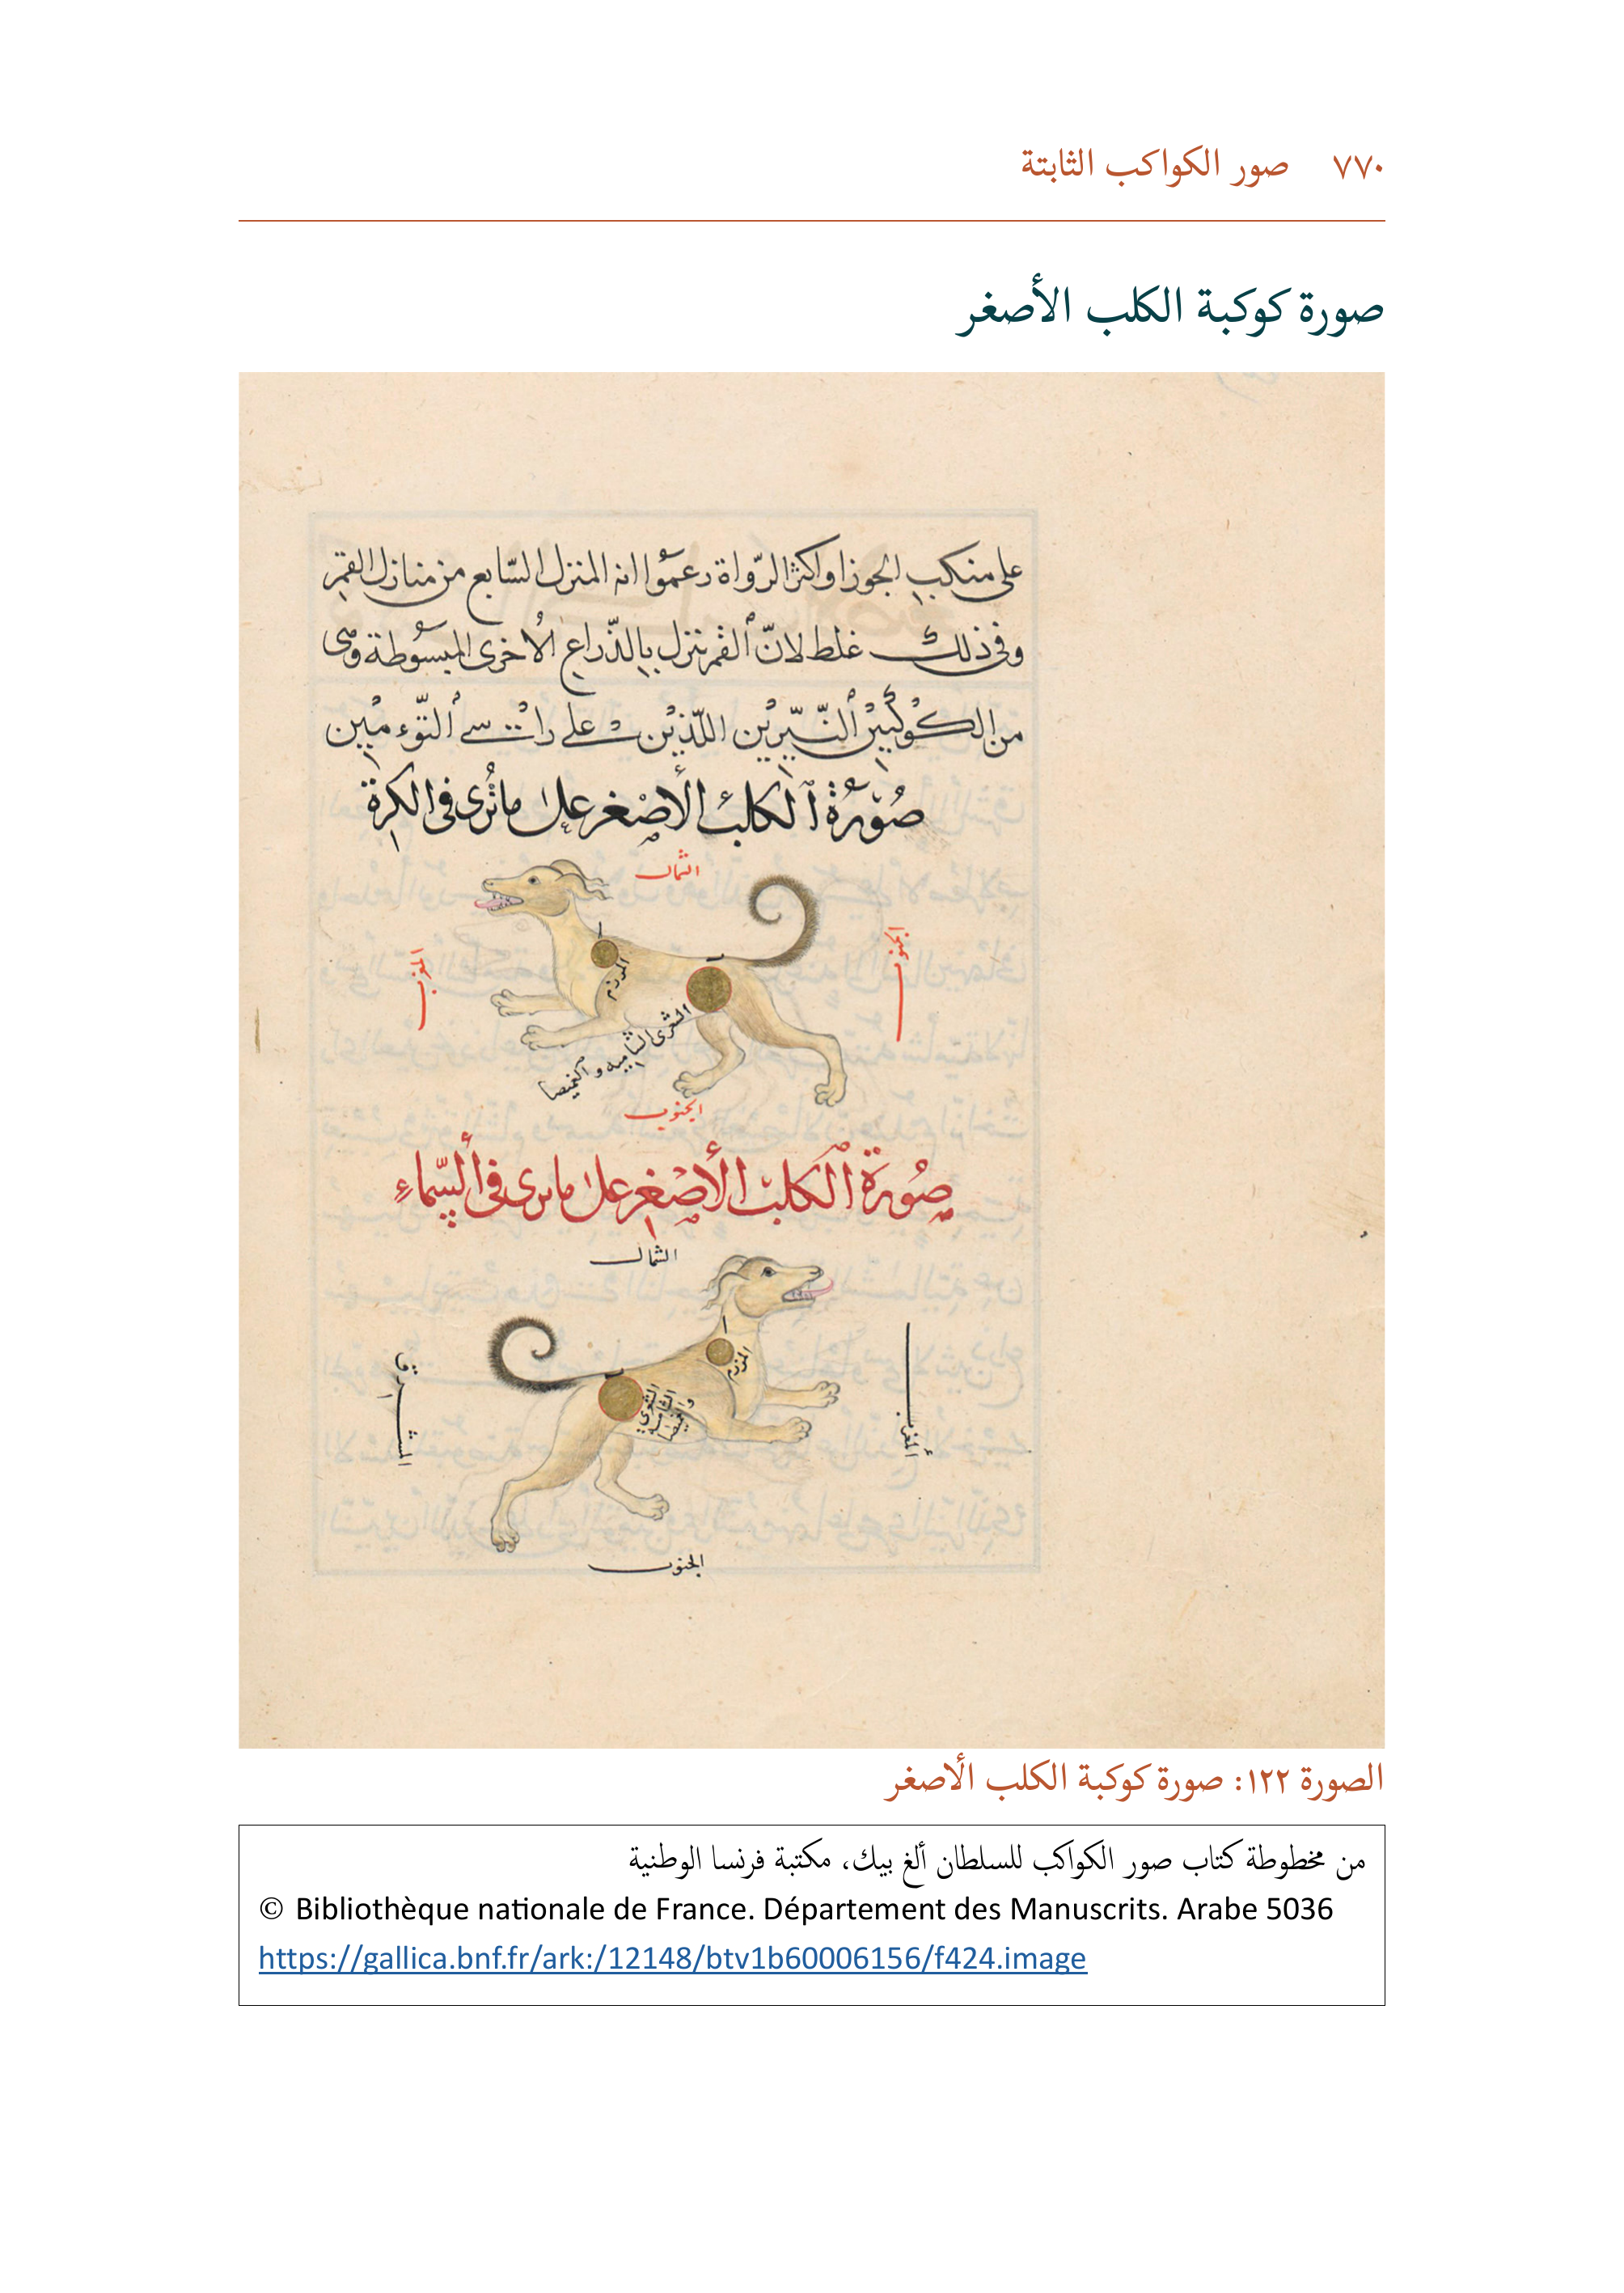 ٧٧٠ صور الكواكب الثابتة
صورة كوكبة الكلب الأصغر
على منكب الجوزا واكثر الرّواة زعموا انه المنزل السّابع من منازل القمر
وفى ذلك غلط لانّ القمر ينزل بالذّراع الأخرى المبسوطة وهى
من الكوكبين النّيّرين اللّذين على راس التّوءمين
صُورَةُ الكلب الأصْغر على ما تُرى فى الكرة
الشمال
المغرب
الجنوب
المرزم
الشعرى الشاميه و الغميصا
الجنوب
صُورَة الكلب الأصْغر على ما يرى فى السّماءِ
الشمال
المشرق
المغرب
المرزم
الشعرى
الشاميه
والغميصا
الجنوب
الصورة ١٢٢: صورة كوكبة الكلب الأصغر
من مخطوطة كتاب صور الكواكب للسلطان ألغ بيك، مكتبة فرنسا الوطنية
© Bibliothèque nationale de France. Département des Manuscrits. Arabe 5036
https://gallica.bnf.fr/ark:/12148/btv1b60006156/f424.image